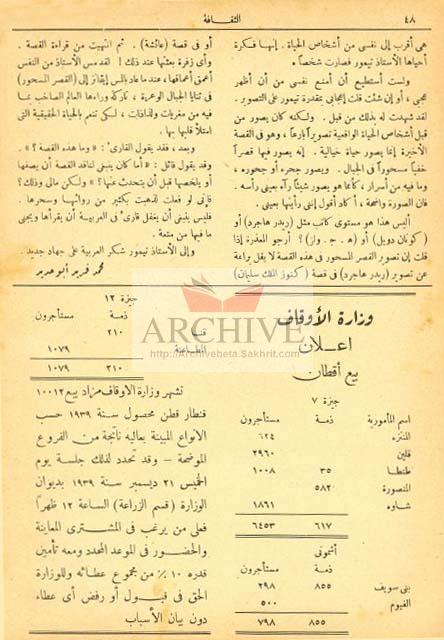 ٤٨
الثقافة
هى أقرب إلى نفسى من أشخاص الحياة . إنها فكرة
أحياها الأستاذ تيمور فصارت شخصاً .
ولست أستطيع أن أمنع نفسى من أن أظهر
عجبى ، أو إن شئت قلت إعجابى بمقدرة تيمور على التصوير .
لقد شهدت له بذلك من قبل . ولكنه كان يصور من
قبل أشخاص الحياة الواقعية تصويراً بارعاً ، وهو فى القصة
الأخيرة إنما يصور حياة خيالية . إنه يصور فيها قصراً
خفياً مسحوراً فى الجبال . ويصور جحره أو جحوره ،
وما فيه من أسرار ، كأنما هو يصور شيئاً رآه بعينى رأسه .
فإن الصورة واضحة ، أكاد أقول إننى رأيتها بعينى .
أليس هذا هو مستوى كاتب مثل (ريدر هاجرد) أو
(كونان دويل) أو (ه . ج . ولز) ؟ أرجو المعذرة إذا
قلت إن تصوير القصر المسحور فى هذه القصة لا يقل براعة
عن تصوير (ريدر هاجرد) فى قصة (كنوز الملك سليمان)
أو فى قصة (عائشة) . ثم انتهيت من قراءة القصة .
وأى زفرة بعثتها عند ذلك ! لقد مس الأستاذ من النفس
أعمق أعماقها ، عند ما عاد بالمس إيڤانز إلى (القصر المسحور)
فى ثنايا الجبال الوعرة ، تاركة وراءها العالم الصاخب بما
فيه من مغريات ولذاذات ، لكى تنعم بالحياة الحقيقية التى
امتلأ قلبها بها .
وبعد ، فقد يقول القارئ : « وما هذه القصة ؟ » .
وقد يقول قائل : « أما كان ينبغى لناقد القصة أن يصفها
أو يلخصها قبل أن يتحدث عنها ؟ » ولكن مالى وذلك ؟
فإنى لو فعلت لذهبت بكثير من روائها وسحرها .
فليس ينبغى أن يغفل قارئ فى العربية أن يقرأها ويجنى
ما فيها من متعة .
وإلى الأستاذ تيمور شكر العربية على جهاد جديد .
محمد فريد أبو حديد
وزارة الأوقاف
اعلان
بيع أقطان
جيزة ٧
اسم المأمورية ذمة مستأجرون
المنتزه ٦٢٤
قلين ٢٩٦٠
طنطا ٣٥ ١٠٠٨
المنصورة ٥٨٢
شاوه ١٨٦١
٦١٧ ٦٤٥٣
أشمونى
ذمة مستأجرون
بنى سويف ٨٥٥ ٢٩٨
الفيوم ٥٠٠
٨٥٥ ٧٩٨
جيزة ١٢
ذمة مستأجرون
قنا ٢١٠
المطاعنة ١٠٧٩
٢١٠ ١٠٧٩
تشهر وزارة الاوقاف مزاد بيع ١٠٠١٢
قنطار قطن محصول سنة ١٩٣٩ حسب
الانواع المبينة بعاليه ناتجة من الفروع
الموضحة – وقد تحدد لذلك جلسة يوم
الخميس ٢١ ديسمبر سنة ١٩٣٩ بديوان
الوزارة (قسم الزراعة) الساعة ١٢ ظهراً
فعلى من يرغب فى المشترى المعاينة
والحضور فى الموعد المحدد ومعه تأمين
قدره ١٠ ٪ من مجموع عطائه وللوزارة
الحق فى قبول أو رفض أى عطاء
دون بيان الأسباب
ARCHIVE
http://Archivebeta.Sakhrit.com